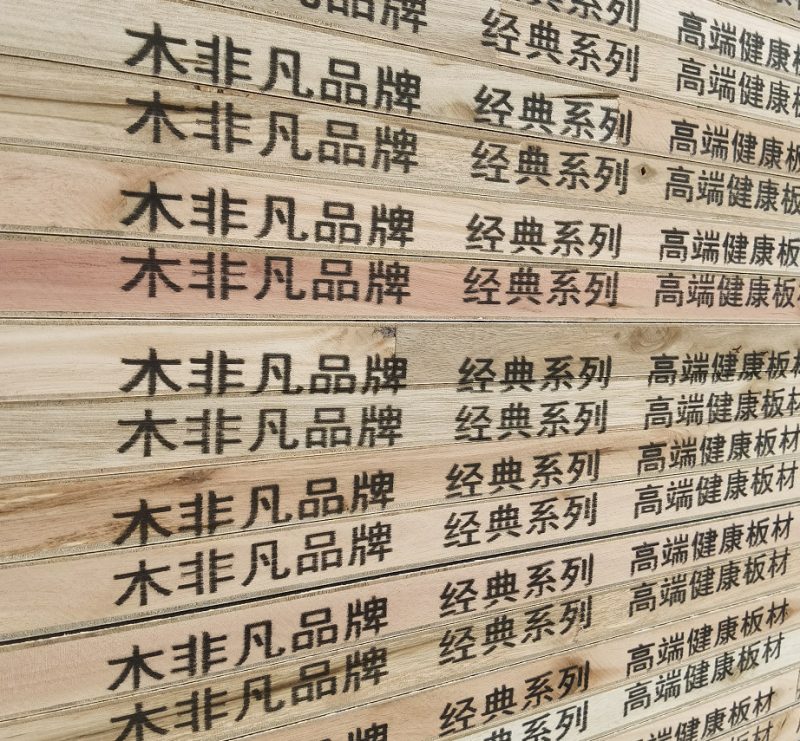 系列 高端健康
品牌 经典系列 高端健康
木非凡品牌 经典系列 高端健康板
木非凡品牌 经典系列 高端健康板
木非凡品牌 经典系列 高端健康板
木非凡品牌 经典系列 高端健康板
木非凡品牌 经典系列 高端健康板材
木非凡品牌 经典系列 高端健康板材
木非凡品牌 经典系列 高端健康板材
木非凡品牌 经典系列 高端健康板材
木非凡品牌 经典系列 高端健康板材
木非凡品牌 经典系列 高端健康板材
牌 经典系列 高端健康板材
经典系列 高端健康板材
高端健康板材